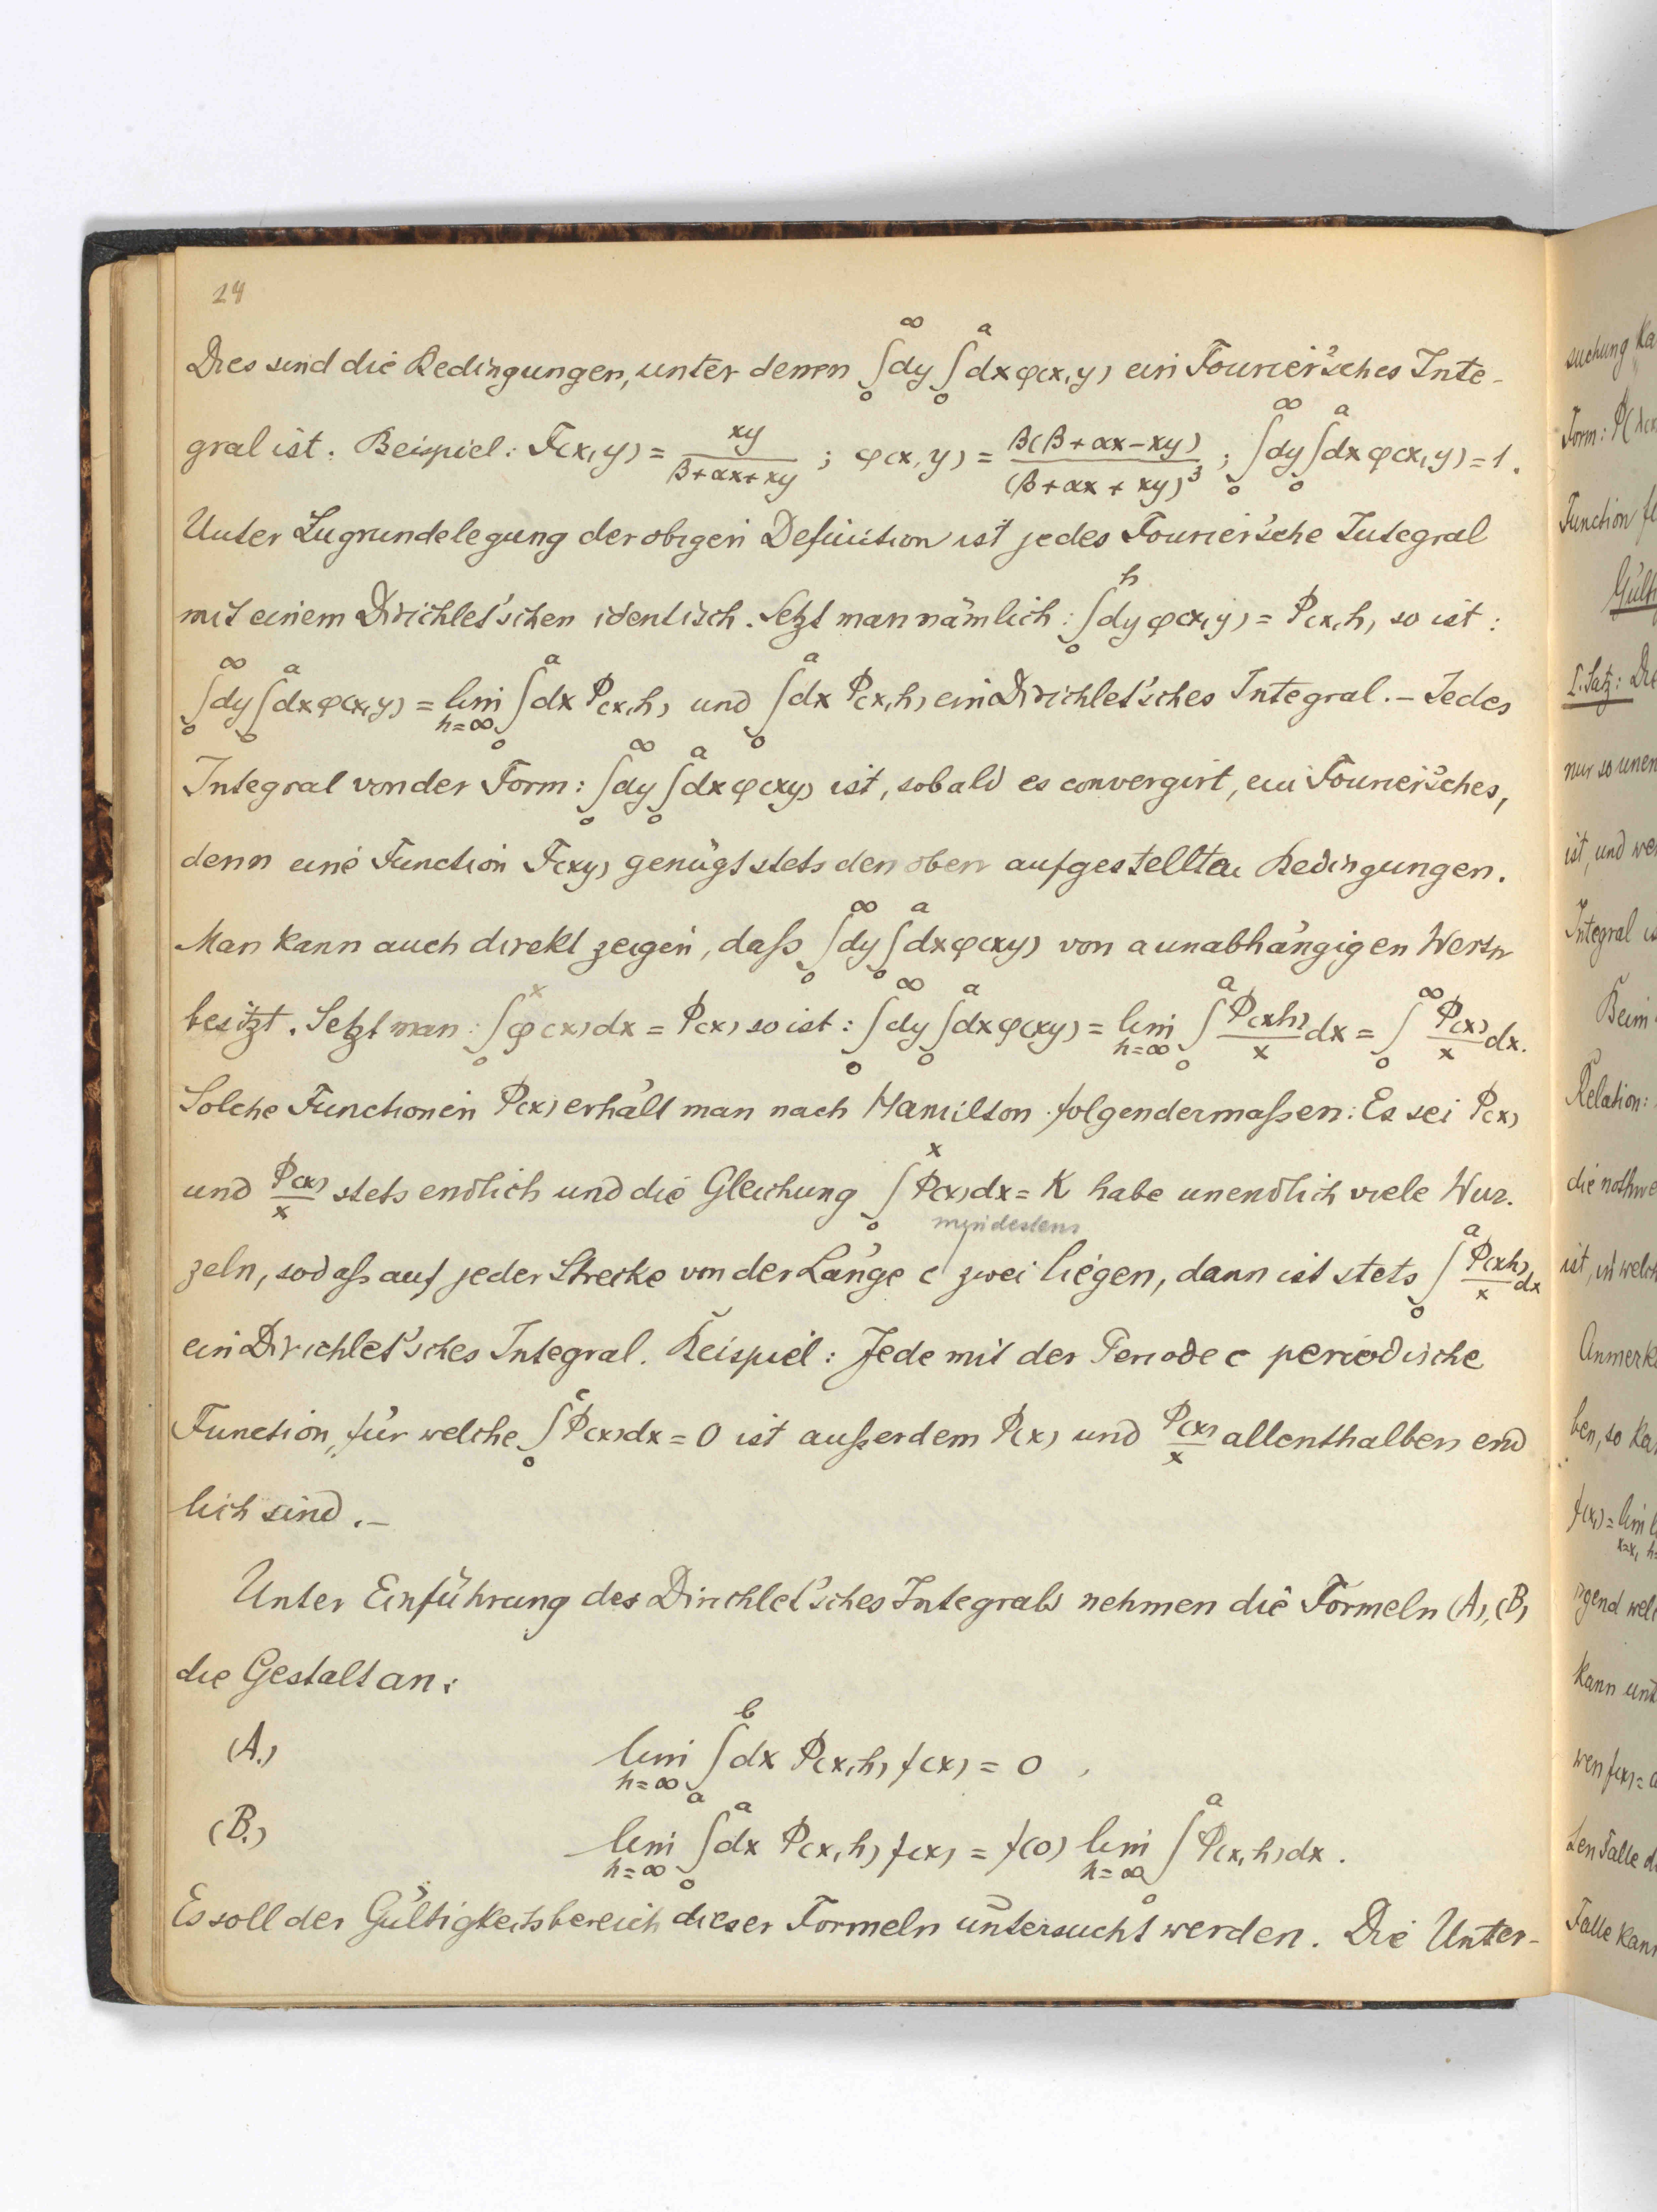 24
Dies sind die Bedingungen, unter denen ∫₀^∞ dy ∫₀^a dx φ(x,y) ein Fourier'sches Inte-
gral ist. Beispiel: F(x,y) = xy/(β+αx+xy) ; φ(x,y) = β(β+αx−xy)/(β+αx+xy)³ ; ∫₀^∞ dy ∫₀^a dx φ(x,y) = 1.
Unter Zugrundelegung der obigen Definition ist jedes Fourier'sche Integral
mit einem Dirichlet'schen identisch. Setzt man nämlich: ∫₀^h dy φ(x,y) = Φ(x,h), so ist:
∫₀^∞ dy ∫₀^a dx φ(x,y) = lim_{h=∞} ∫₀^a dx Φ(x,h) und ∫₀^a dx Φ(x,h) ein Dirichlet'sches Integral. – Jedes
Integral von der Form: ∫₀^∞ dy ∫₀^a dx φ(xy) ist, sobald es convergirt, ein Fourier'sches,
denn eine Function F(xy) genügt stets den oben aufgestellten Bedingungen.
Man kann auch direkt zeigen, daß ∫₀^∞ dy ∫₀^a dx φ(xy) von a unabhängigen Werth
besitzt. Setzt man: ∫₀^x φ(x)dx = Φ(x) so ist: ∫₀^∞ dy ∫₀^a dx φ(xy) = lim_{h=∞} ∫₀^a Φ(xh)/x dx = ∫₀^∞ Φ(x)/x dx.
Solche Functionen Φ(x) erhält man nach Hamilton folgendermaßen: Es sei Φ(x)
und Φ(x)/x stets endlich und die Gleichung ∫₀^x Φ(x)dx = K habe unendlich viele Wur-
mindestens
zeln, sodaß auf jeder Strecke von der Länge c zwei liegen, dann ist stets ∫₀^a Φ(xh)/x dx
ein Dirichlet'sches Integral. Beispiel: Jede mit der Periode c periodische
Function, für welche ∫₀^c Φ(x)dx = 0 ist außerdem Φ(x) und Φ(x)/x allenthalben end
lich sind. –
Unter Einführung des Dirichlet'sches Integrals nehmen die Formeln (A), (B)
die Gestalt an:
(A.) lim_{h=∞} ∫_a^b dx Φ(x,h) f(x) = 0 ,
(B.) lim_{h=∞} ∫₀^a dx Φ(x,h) f(x) = f(0) lim_{h=∞} ∫₀^a Φ(x,h)dx .
Es soll der Gültigkeitsbereich dieser Formeln untersucht werden. Die Unter-
suchung
Form:
Function
I. Satz: Die
nur so unen
ist, und we
Integral is
Beim
Relation:
die nothwe
ist, in welch
Anmerk
ben, so ka
irgend wel
kann unt
Falle kann